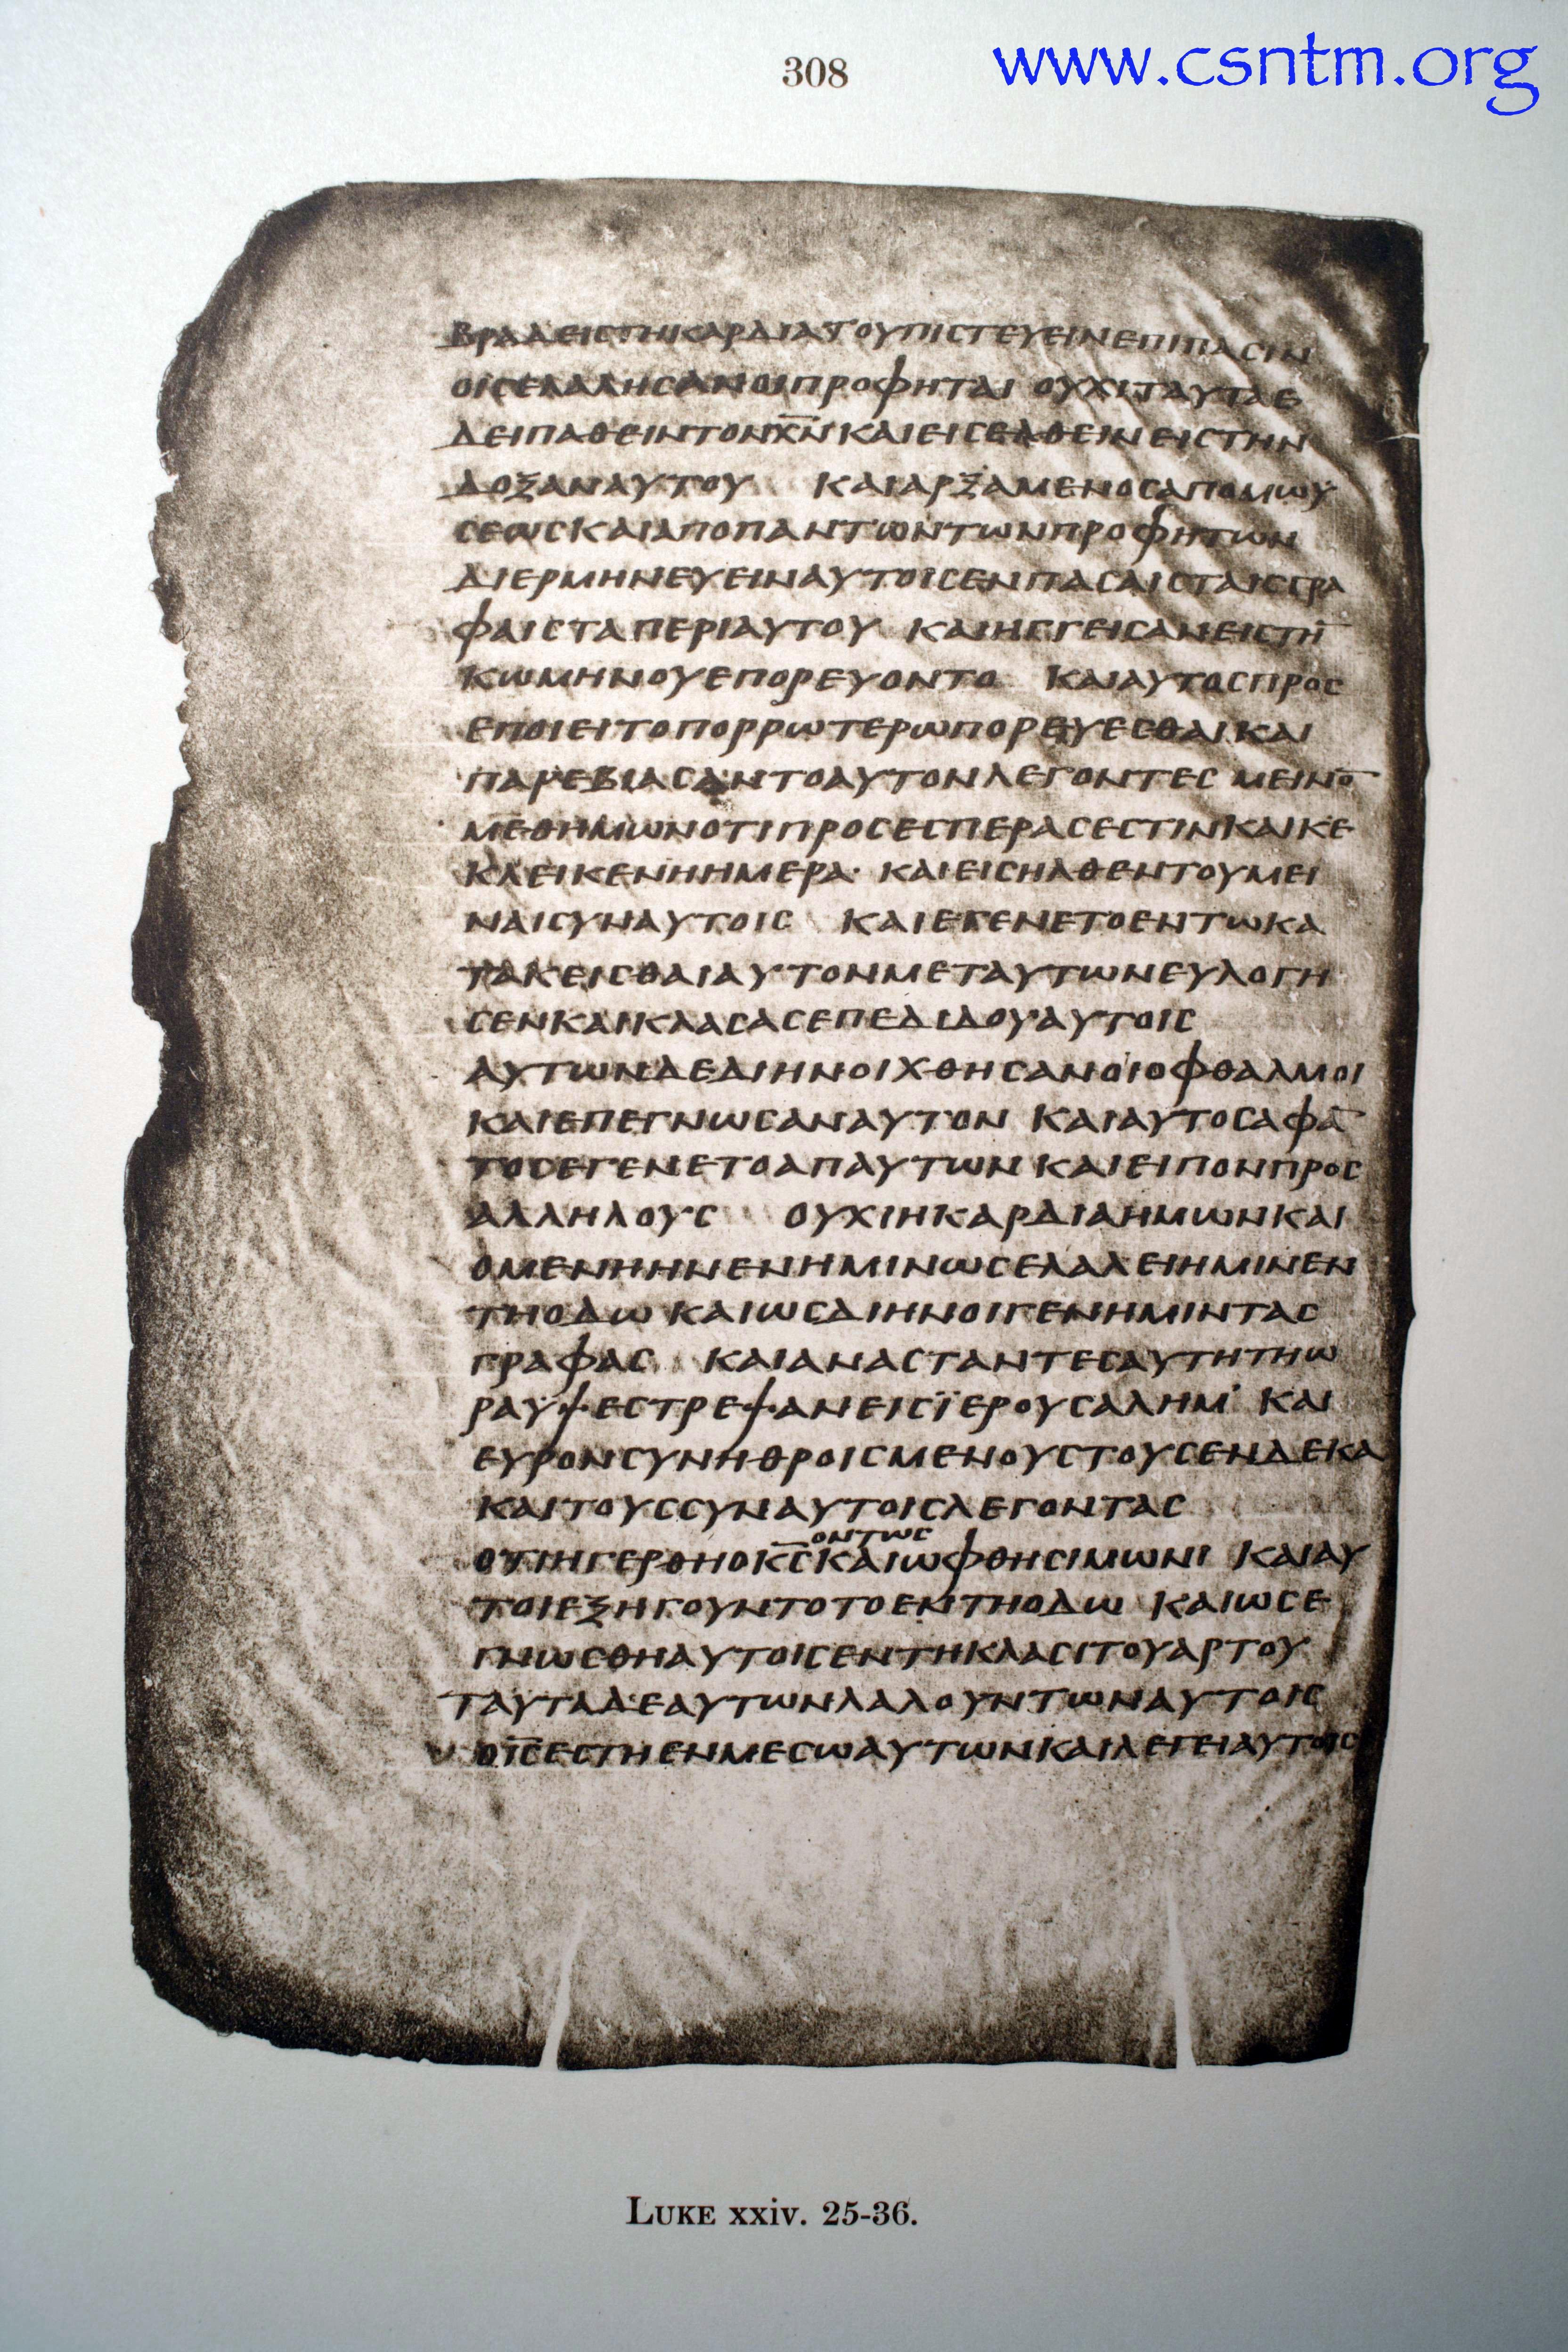 308
www.csntm.org
ΒΡΑΔΕΙCΤΗΚΑΡΔΙΑΤΟΥΠΙCΤΕΥΕΙΝΕΠΙΠΑCΙΝ
ΟΙCΕΛΑΛΗCΑΝΟΙΠΡΟΦΗΤΑΙ ΟΥΧΙΤΑΥΤΑΕ
ΔΕΙΠΑΘΕΙΝΤΟΝΧ̅Ν̅ΚΑΙΕΙCΕΛΘΕΙΝΕΙCΤΗΝ
ΔΟΞΑΝΑΥΤΟΥ ΚΑΙΑΡΞΑΜΕΝΟCΑΠΟΜΩΥ
CΕΩCΚΑΙΑΠΟΠΑΝΤΩΝΤΩΝΠΡΟΦΗΤΩΝ
ΔΙΕΡΜΗΝΕΥΕΙΝΑΥΤΟΙCΕΝΠΑCΑΙCΤΑΙCΓΡΑ
ΦΑΙCΤΑΠΕΡΙΑΥΤΟΥ ΚΑΙΗΓΓΕΙCΑΝΕΙCΤΗ̅
ΚΩΜΗΝΟΥΕΠΟΡΕΥΟΝΤΟ ΚΑΙΑΥΤΟCΠΡΟC
ΕΠΟΙΕΙΤΟΠΟΡΡΩΤΕΡΩΠΟΡΕΥΕCΘΑΙΚΑΙ
ΠΑΡΕΒΙΑCΑΝΤΟΑΥΤΟΝΛΕΓΟΝΤΕC ΜΕΙΝΟ̅
ΜΕΘΗΜΩΝΟΤΙΠΡΟCΕCΠΕΡΑCΕCΤΙΝΚΑΙΚΕ
ΚΛΕΙΚΕΝΗΗΜΕΡΑ· ΚΑΙΕΙCΗΛΘΕΝΤΟΥΜΕΙ
ΝΑΙCΥΝΑΥΤΟΙC ΚΑΙΕΓΕΝΕΤΟΕΝΤΩΚΑ
ΤΑΚΕΙCΘΑΙΑΥΤΟΝΜΕΤΑΥΤΩΝΕΥΛΟΓΗ
CΕΝΚΑΙΚΛΑCΑCΕΠΕΔΙΔΟΥΑΥΤΟΙC
ΑΥΤΩΝΔΕΔΙΗΝΟΙΧΘΗCΑΝΟΙΟΦΘΑΛΜΟΙ
ΚΑΙΕΠΕΓΝΩCΑΝΑΥΤΟΝ ΚΑΙΑΥΤΟCΑΦΑ̅
ΤΟCΕΓΕΝΕΤΟΑΠΑΥΤΩΝΚΑΙΕΙΠΟΝΠΡΟC
ΑΛΛΗΛΟΥC ΟΥΧΙΗΚΑΡΔΙΑΗΜΩΝΚΑΙ
ΟΜΕΝΗΗΝΕΝΗΜΙΝΩCΕΛΑΛΕΙΗΜΙΝΕΝ
ΤΗΟΔΩ ΚΑΙΩCΔΙΗΝΟΙΓΕΝΗΜΙΝΤΑC
ΓΡΑΦΑC ΚΑΙΑΝΑCΤΑΝΤΕCΑΥΤΗΤΗΩ
ΡΑΫΨΕCΤΡΕΨΑΝΕΙCΪΕΡΟΥCΑΛΗΜ ΚΑΙ
ΕΥΡΟΝCΥΝΗΘΡΟΙCΜΕΝΟΥCΤΟΥCΕΝΔΕΚΑ
ΚΑΙΤΟΥCCΥΝΑΥΤΟΙCΛΕΓΟΝΤΑC
ΟΝΤΩC
ΟΤΙΗΓΕΡΘΗΟΚ̅C̅ΚΑΙΩΦΘΗCΙΜΩΝΙ ΚΑΙΑΥ
ΤΟΙΕΞΗΓΟΥΝΤΟΤΟΕΝΤΗΟΔΩ ΚΑΙΩCΕ
ΓΝΩCΘΗΑΥΤΟΙCΕΝΤΗΚΛΑCΙΤΟΥΑΡΤΟΥ
ΤΑΥΤΑΔΕΑΥΤΩΝΛΑΛΟΥΝΤΩΝΑΥΤΟΙC
ΟΙ̅C̅ΕCΤΗΕΝΜΕCΩΑΥΤΩΝΚΑΙΛΕΓΕΙΑΥΤΟΙC
LUKE xxiv. 25-36.